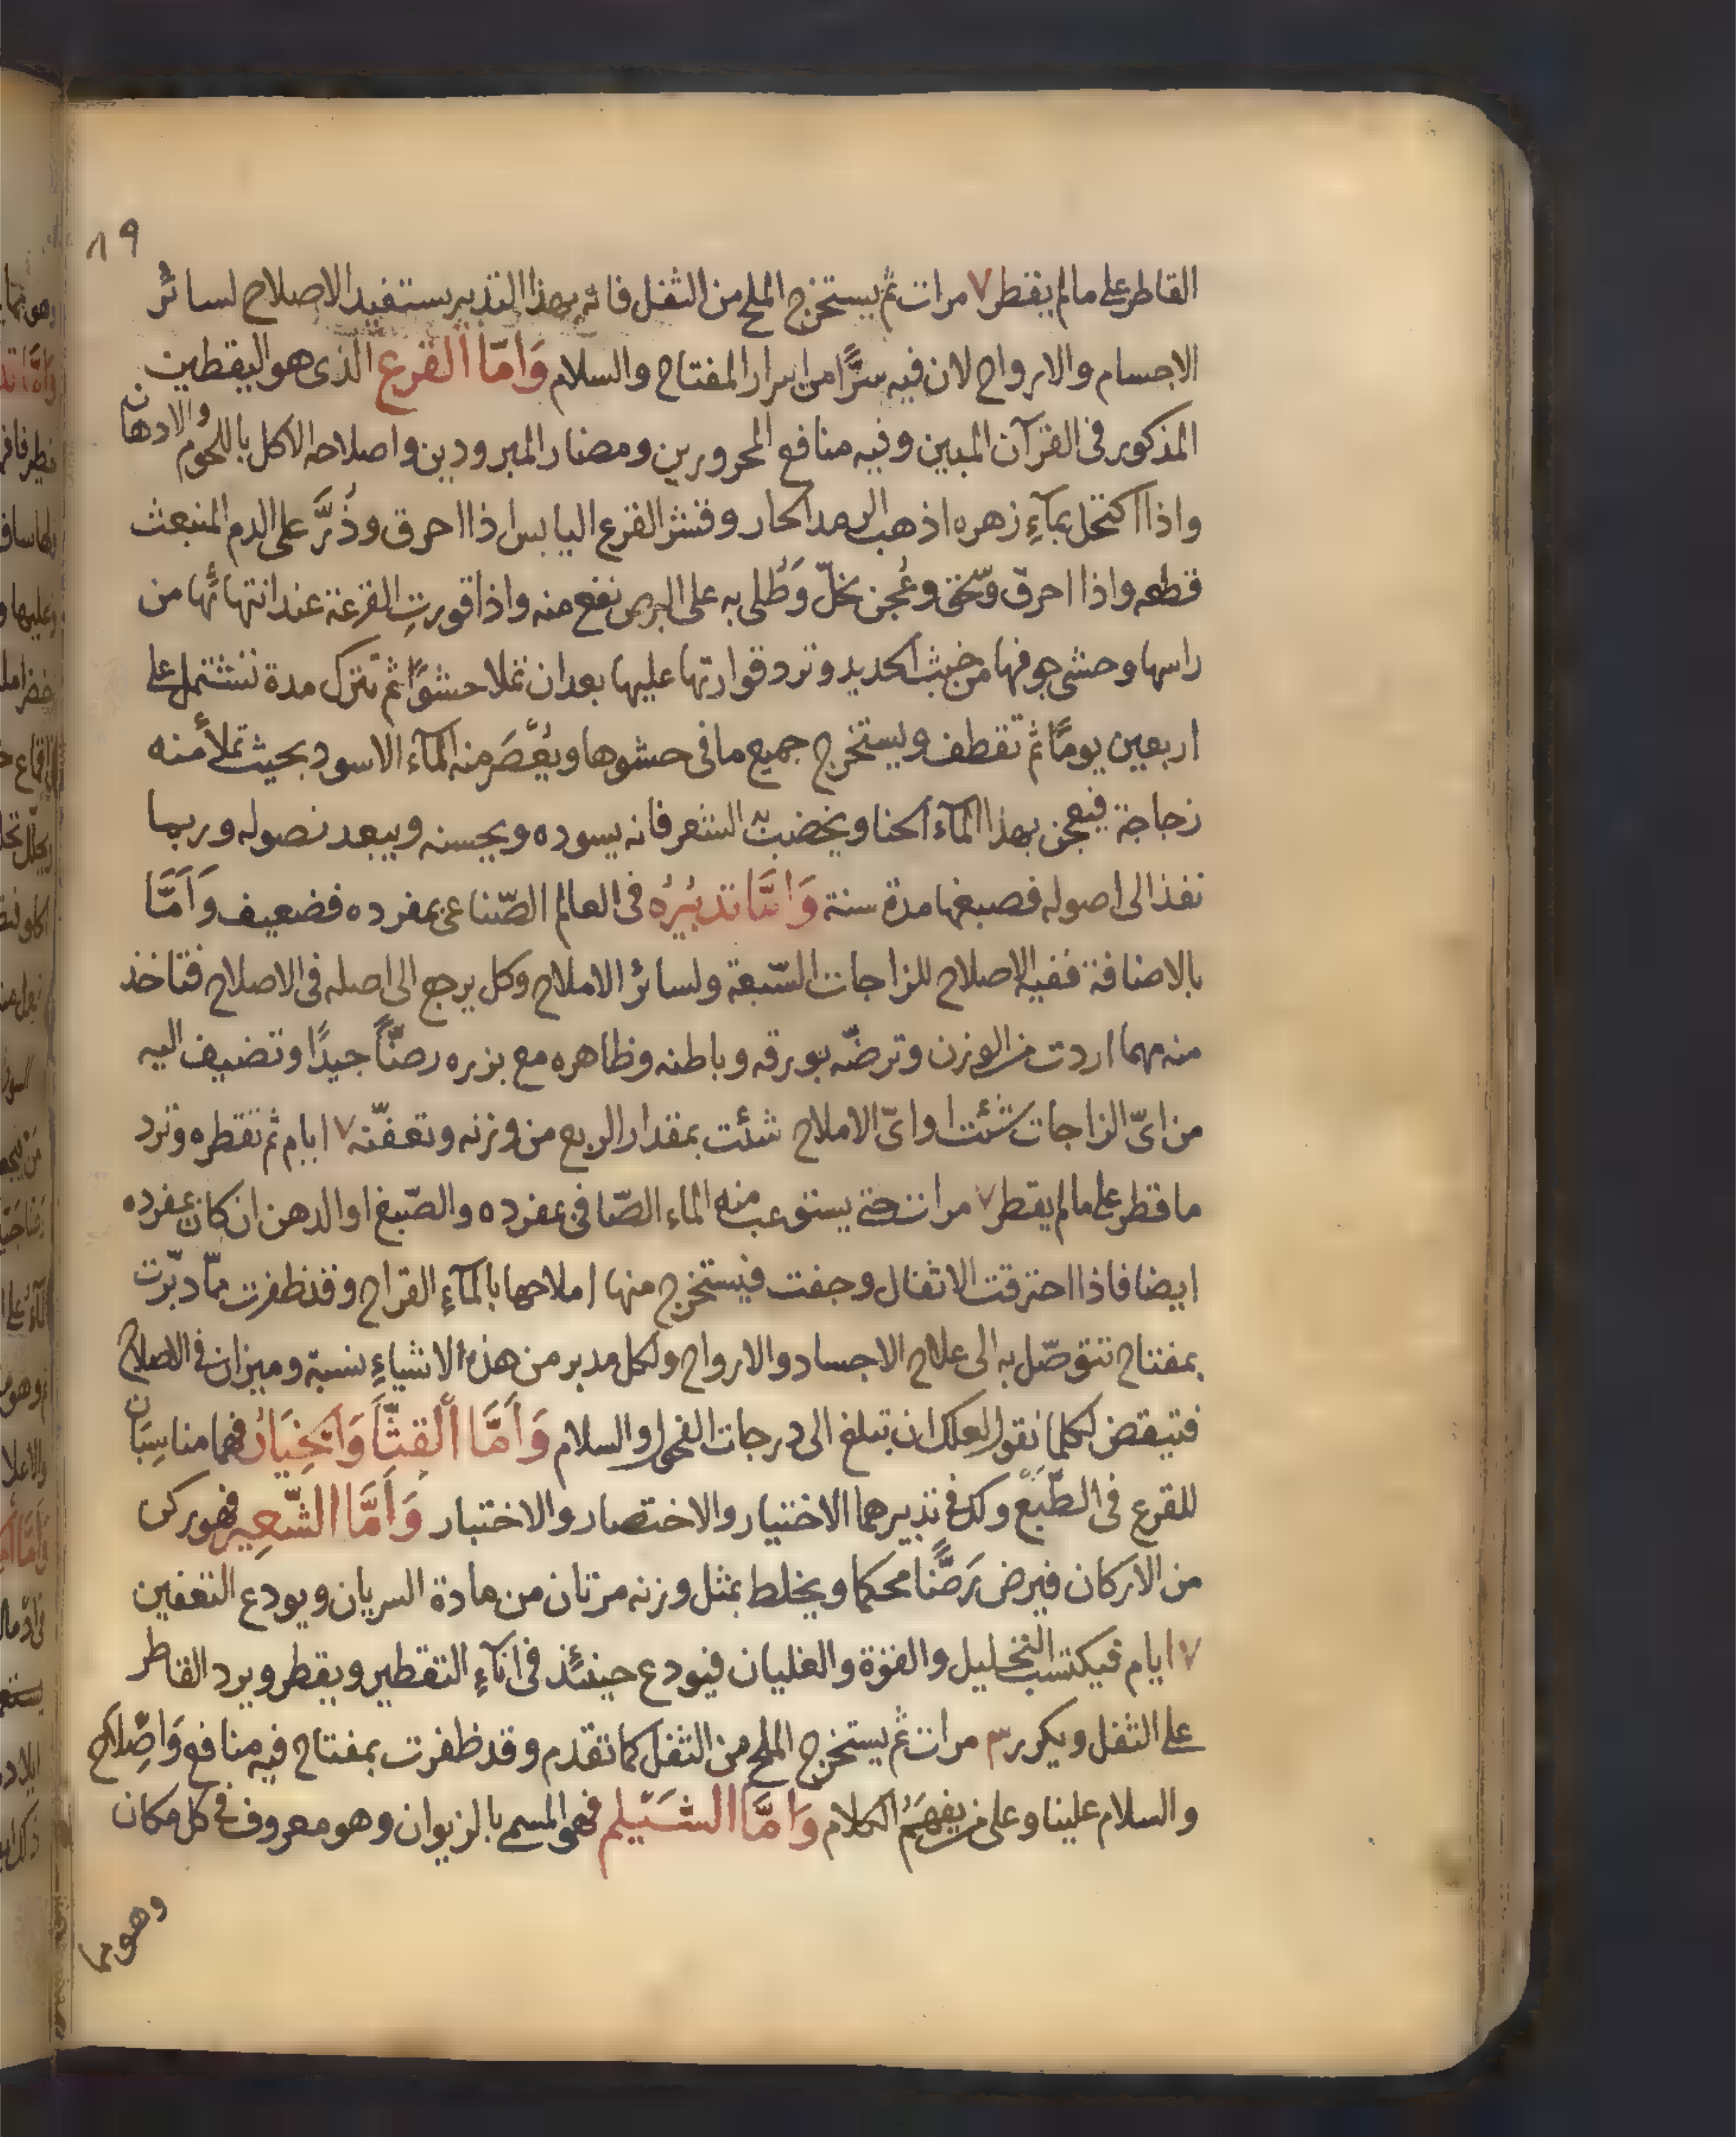 ٨٩
القاطر على ما لم يقطر ٧ مرات ثم يستخرج الملح من الثفل فانه بهذا التدبير يستفيد الاصلاح لسائر
الاجسام والارواح لان فيه سرًّا من اسرار المفتاح والسلام وَامّا القرع الذى هو اليقطين
المذكور فى القرآن المبين وفيه منافع المحرورين ومضار المبرودين واصلاحه الاكل باللحوم والادهان
واذا اكتحل بمآءِ زهره اذهب الرمد الحار وقشر القرع اليابس اذا احرق وذُرَّ على الدم المنبعث
قطعه واذا احرق وسّحق وعُجن بخلّ وَطُلى به على البرص نفع منه واذا قورتِ القرعة عند انتهائها من
راسها وحشى جوفها من خبث الحديد وترد قوارتها عليها بعد ان تملا حشوًا ثم تترك مدة تشتمل على
اربعين يومًا ثم تقطف ويستخرج جميع ما فى حشوها ويُعْصَر منه المآء الاسود بحيث تملأ منه
زجاجة فيعجن بهذا المآء الحنا ويخضب به الشعر فانه يسوده ويحسنه ويبعد نصوله وربما
نفذ الى اصوله فصبغها مدة سنة وَامَّا تدبيُرُه فى العالم الصّناعى بمفرده فضعيف وَاَمَّا
بالاضافة ففيه الاصلاح للزاجات السّبعة ولسائر الاملاح وكل يرجع الى اصله فى الاصلاح فتاخذ
منه مهما اردت من الوزن وترضّه بورقه وباطنه وظاهره مع بزره رضّاً جيدًا وتضيف اليه
من اىّ الزاجات شئت او اىّ الاملاح شئت بمقدار الربع من وزنه وتعفّنه ٧ ايام ثم تقطره وترد
ما قطر على ما لم يقطر ٧ مرات حتى يستوعب منه الماء الصّافى بمفرده والصّبغ او الدهن ان كان بمفرده
ايضا فاذا احترقت الاثفال وجفت فيستخرج منها املاحها بالمآءِ القراح وقد ظفرت ممّا دبّرت
بمفتاح تتوصّل به الى علاج الاجساد والارواح ولكل مدبر من هذه الاشياءِ نسبة وميزان فى الاصلاح
فتيقض لكلما نقول لعلك ان تبلغ الى درجات الفحول والسلام وَاَمَّا القثّآَ وَالخِيَارُ فهما مناسِبَان
للقرع فى الطّبع ولك فى تدبيرهما الاختيار والاختصار والاختبار وَاَمَّا الشَّعِير فهو ركن
من الاركان فيرض رَضًّا محكما ويخلط بمثل وزنه مرتان من مادة السريان ويودع التعفين
٧ ايام فيكتسب التخليل والقوة والغليان فيودع حينئذ فى انآءِ التقطير ويقطر ويرد القاطر
على الثفل ويكرر ٣ مرات ثم يستخرج الملح من الثفل كما تقدم وقد ظفرت بمفتاح فيه منافع وَاصِلاح
والسلام علينا وعلى من يفهَمُ الكلام وَامَّا الشَيْلم فهو المسمى بالزيوان وهو معروف فى كل مكان
وهو مما